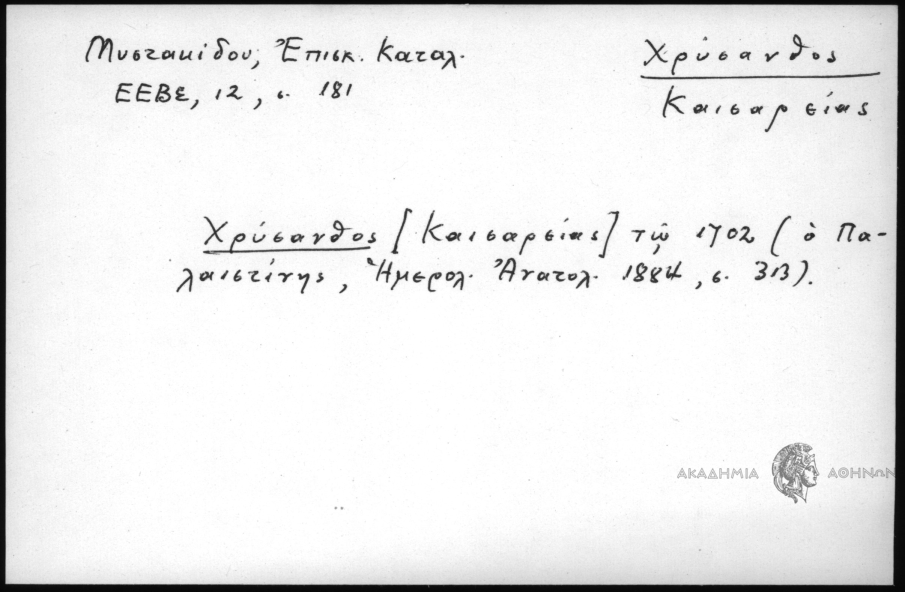 Μυστακίδου, Ἐπισκ. Καταλ.
ΕΕΒΣ, 12, σ. 181
Χρύσανθος
Καισαρείας
Χρύσανθος [Καισαρείας] τῷ 1702 (ὁ Πα-
λαιστίνης, Ἡμερολ. Ἀνατολ. 1884, σ. 313).
ΑΚΑΔΗΜΙΑ ΑΘΗΝΩΝ